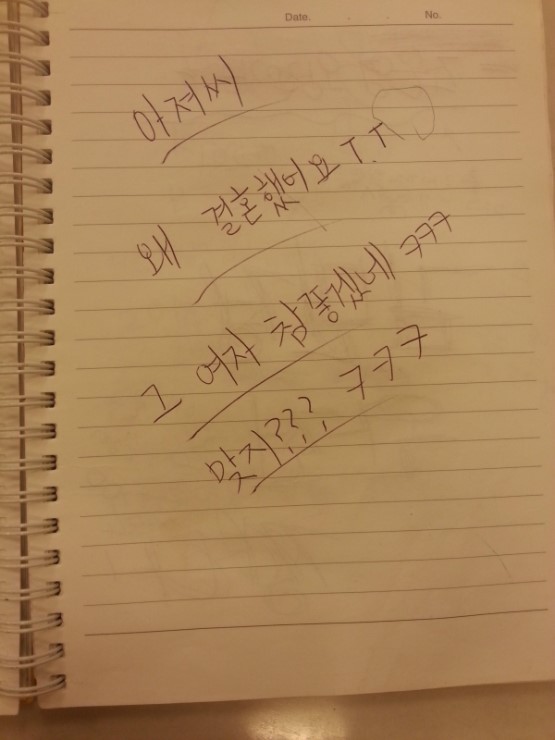 Date. . . No.
아저씨
왜 결혼했어요 T.T
그 여자 참좋겠네 ㅋㅋㅋ
맞지??? ㅋㅋㅋ